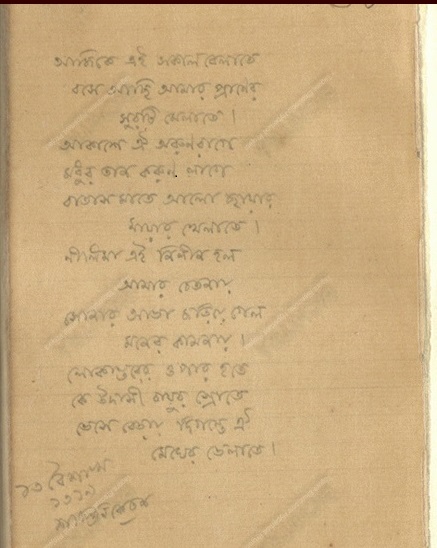 আজিকে এই সকালবেলাতে
বসে আছি আমার প্রাণের
সুরটি মেলাতে।
আকাশে ঐ অরুণরাগে
মধুর তান করুণ লাগে
বাতাস মাতে আলোছায়ার
মায়ার খেলাতে।
নীলিমা এই নিলীন হল
আমার চেতনায়
সোনার আভা জড়িয়ে গেল
মনের কামনায়।
লোকান্তরের ওপার হতে
কে উদাসী বায়ুর স্রোতে
ভেসে বেড়ায় দিগন্তে ঐ
মেঘের ভেলাতে।
১৩ বৈশাখ
শান্তিনিকেতন